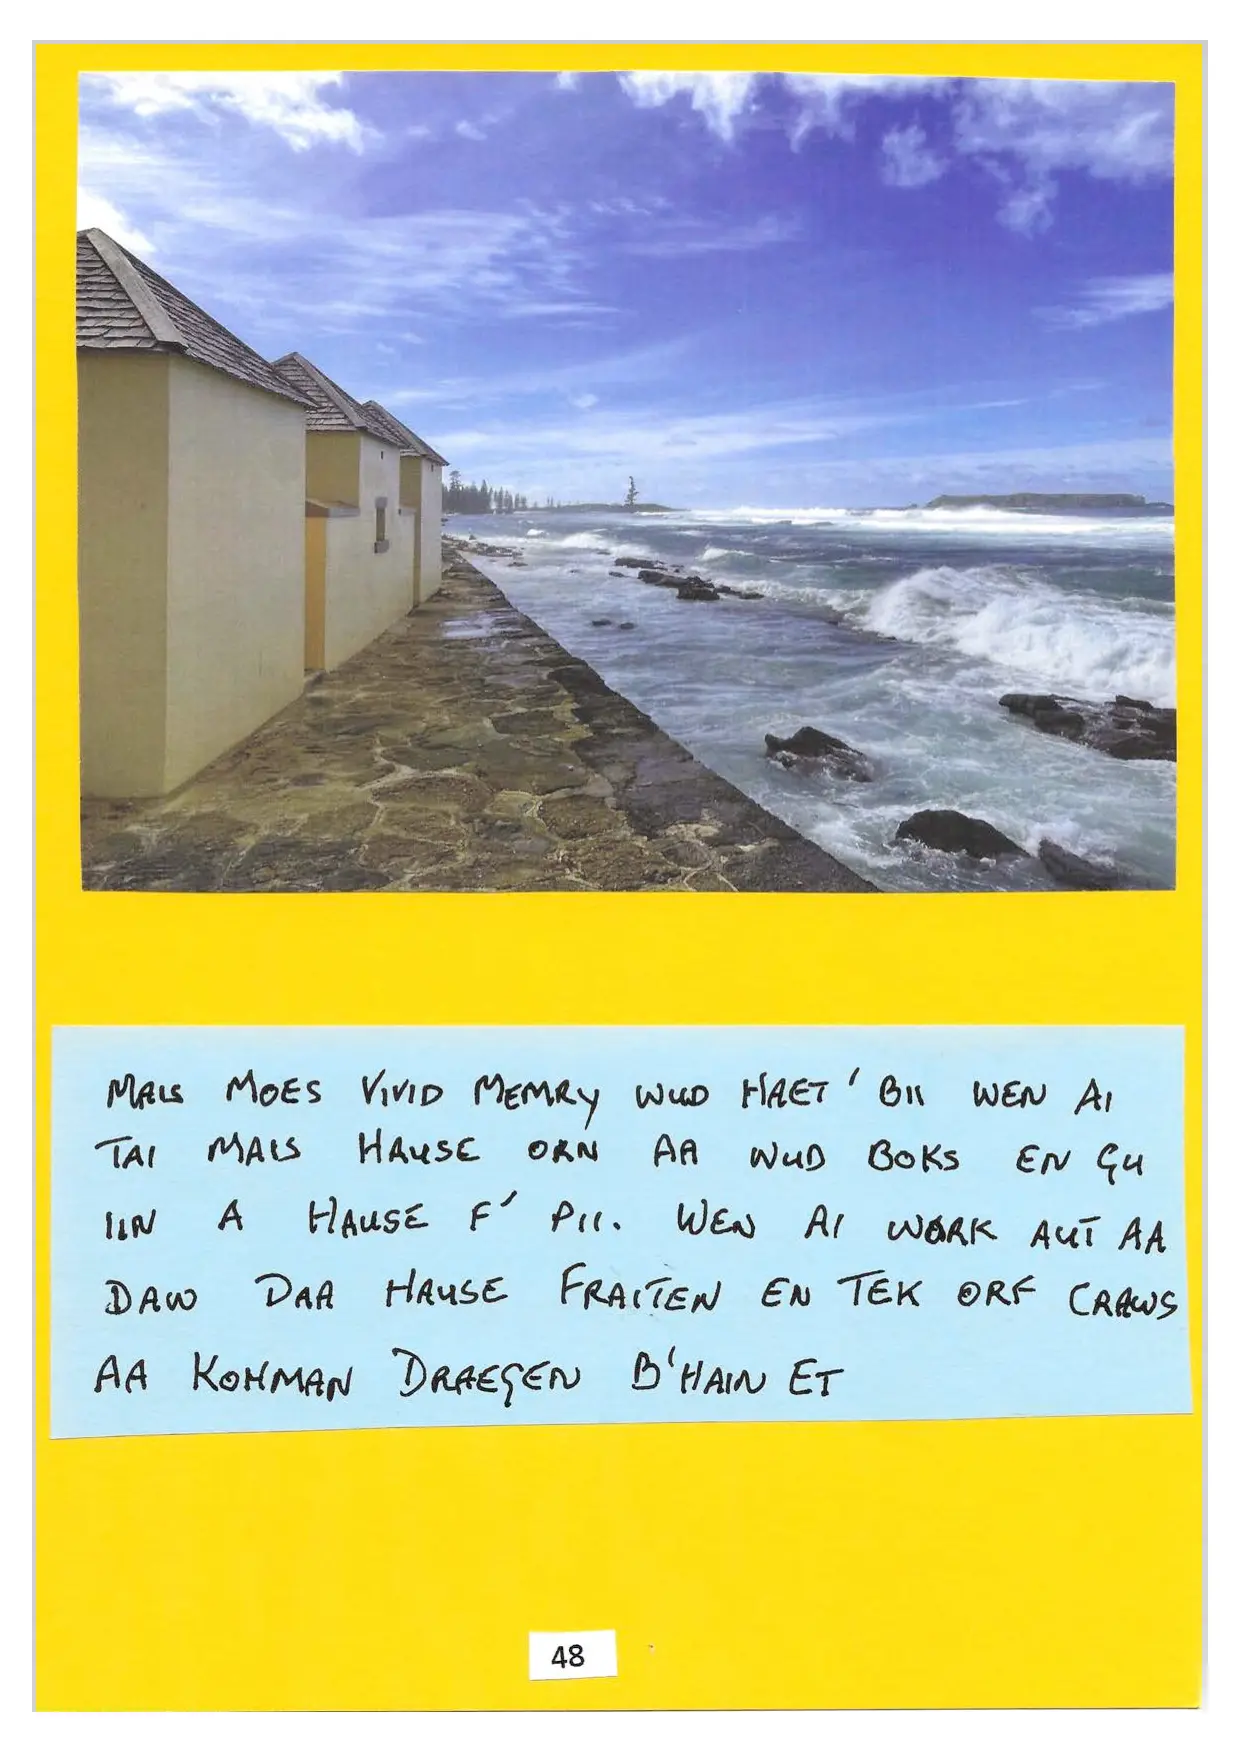 MAIS MOES VIVID MEMRY WUD HAET' BII WEN AI
TAI MAIS HAUSE ORN AA WUD BOKS EN GU
IIN A HAUSE F' PII. WEN AI WORK AUT AA
DAW DAA HAUSE FRAITEN EN TEK ORF CRAWS
AA KOHMAN DRAEGEN B'HAIN ET
48